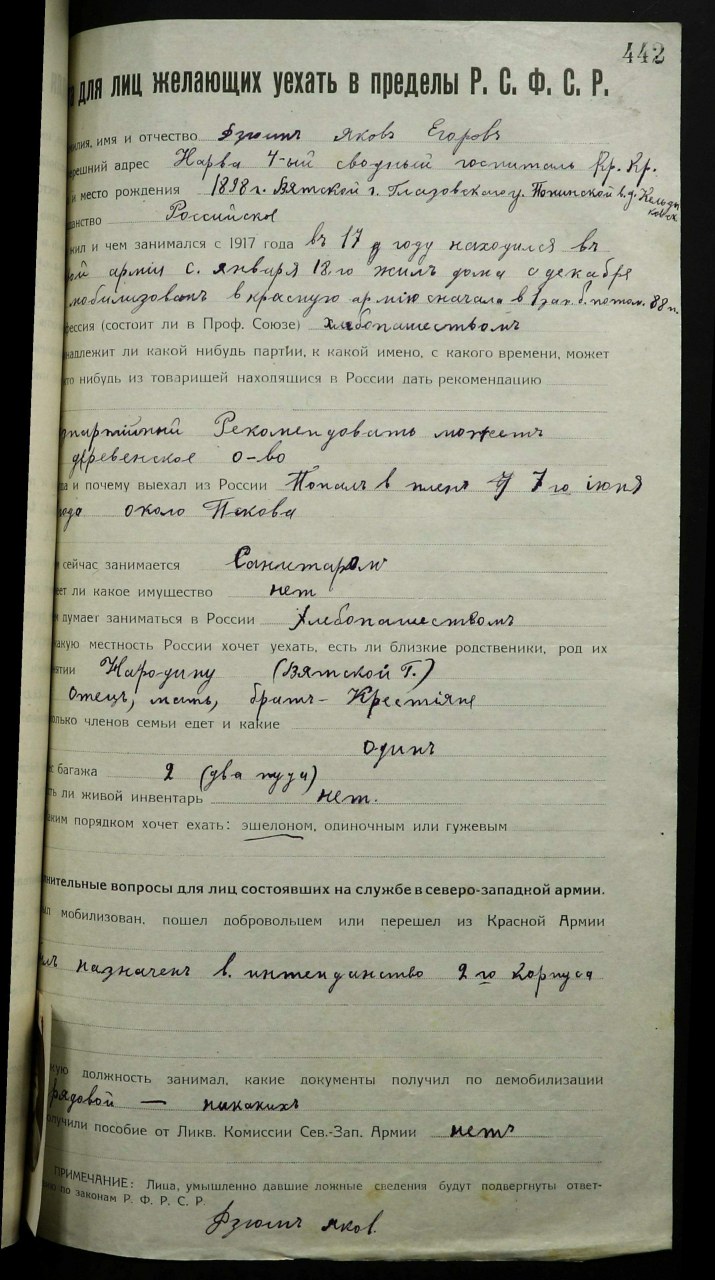 442
для лиц желающих уехать в пределы Р. С. Ф. С. Р.
имя и отчество Яковъ Егоровъ
адрес Нарва 4-ый сводный госпиталь Кр. Кр.
и место рождения 1898 г. Вятской г. Глазовскаго у. Понинской в. д.
Российское
и чем занимался с 1917 года въ 17 году находился въ
армии с. января 18.го жилъ дома с декабря
мобилизованъ в красную армію сначала в 1 зап. б. потом. 88 п.
(состоит ли в Проф. Союзе) хлебопашествомъ
ли какой нибудь партіи, к какой имено, с какого времени, может
нибудь из товарищей находящися в России дать рекомендацию
Рекомендовать можетъ
деревенское о-во
и почему выехал из России Попалъ в пленъ 7 го іюня
около Пскова
сейчас занимается Санитаром
ли какое имущество нет
думает заниматься в России Хлебопашествомъ
местность России хочет уехать, есть ли близкие родственики, род их
На родину (Вятской Г.)
Отецъ, мать, братъ - Крестіяне
членов семьи едет и какие
одинъ
багажа 2 (два пуда)
ли живой инвентарь нет.
порядком хочет ехать: эшелоном, одиночным или гужевым
вопросы для лиц состоявших на службе в северо-западной армии.
мобилизован, пошел добровольцем или перешел из Красной Армии
назначенъ в. интенданство 2 го корпуса
должность занимал, какие документы получил по демобилизации
рядовой — никакихъ
пособие от Ликв. Комиссии Сев.-Зап. Армии нетъ
ПРИМЕЧАНИЕ: Лица, умышленно давшие ложные сведения будут подвергнуты ответ-
по законам Р. Ф. Р. С. Р.
Яков.